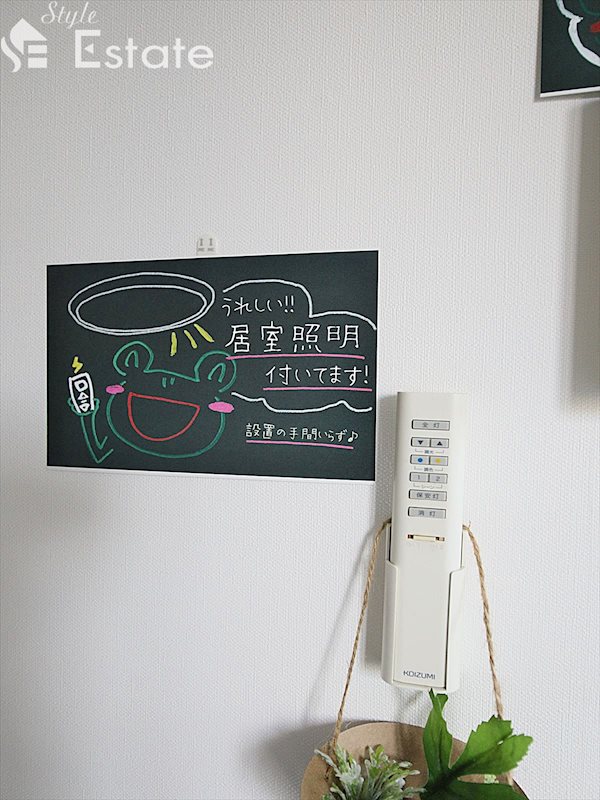 Style
Estate
うれしい!!
居室照明
付いてます!
設置の手間いらず♪
全灯
▼ ▲
調光
調色
1 2
シーン
保安灯
消灯
KOIZUMI